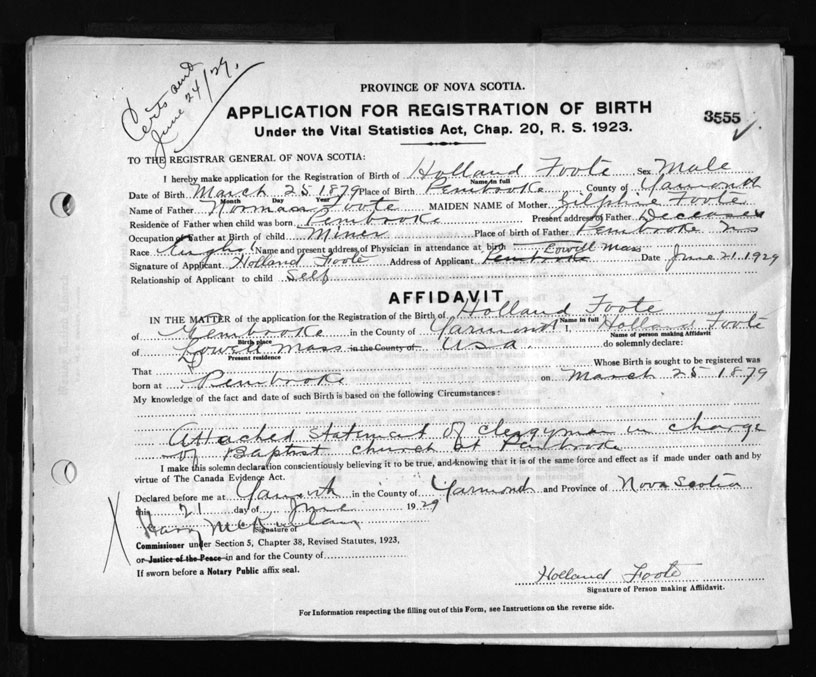 Certs sent
June 24/29.
PROVINCE OF NOVA SCOTIA.
APPLICATION FOR REGISTRATION OF BIRTH
3555
Under the Vital Statistics Act, Chap. 20, R. S. 1923.
TO THE REGISTRAR GENERAL OF NOVA SCOTIA:
I hereby make application for the Registration of Birth of Holland Foote Sex Male
Name in full
Date of Birth March 25 1879 Place of Birth Pembrooke County of Yarmouth
Month Day Year
Name of Father Norman Foote MAIDEN NAME of Mother Zilphine Foote
Residence of Father when child was born Pembrooke Present address of Father Deceased
Occupation of Father at Birth of child Miner Place of birth of Father Pembrooke N S
Race Name and present address of Physician in attendance at birth
Lowell Mass
Signature of Applicant Holland Foote Address of Applicant Pembrooke Date June 21. 1929
Relationship of Applicant to child Self
AFFIDAVIT
IN THE MATTER of the application for the Registration of the Birth of Holland Foote
Name in full
of Pembrooke in the County of Yarmouth I, Holland Foote
Birth place Name of person making Affidavit
of Lowell Mass in the County of U S A do solemnly declare:
Present residence
That Whose Birth is sought to be registered was
born at Pembrooke on March 25 1879
My knowledge of the fact and date of such Birth is based on the following Circumstances:
Attached statement of clergyman in charge
of Baptist church at Pembrooke
I make this solemn declaration conscientiously believing it to be true, and knowing that it is of the same force and effect as if made under oath and by
virtue of The Canada Evidence Act.
Declared before me at Yarmouth in the County of Yarmouth and Province of Nova Scotia
this 21 day of June 1929
Harry
Signature of
Commissioner under Section 5, Chapter 38, Revised Statutes, 1923,
or Justice of the Peace in and for the County of
If sworn before a Notary Public affix seal.
Holland Foote
Signature of Person making Affidavit.
For Information respecting the filling out of this Form, see Instructions on the reverse side.